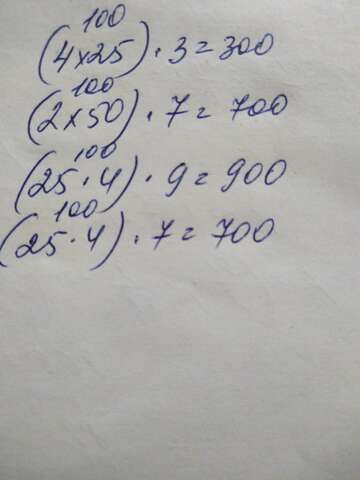 100
(4×25) · 3 = 300
100
(2×50) · 7 = 700
100
(25 · 4) · 9 = 900
100
(25 · 4) · 7 = 700